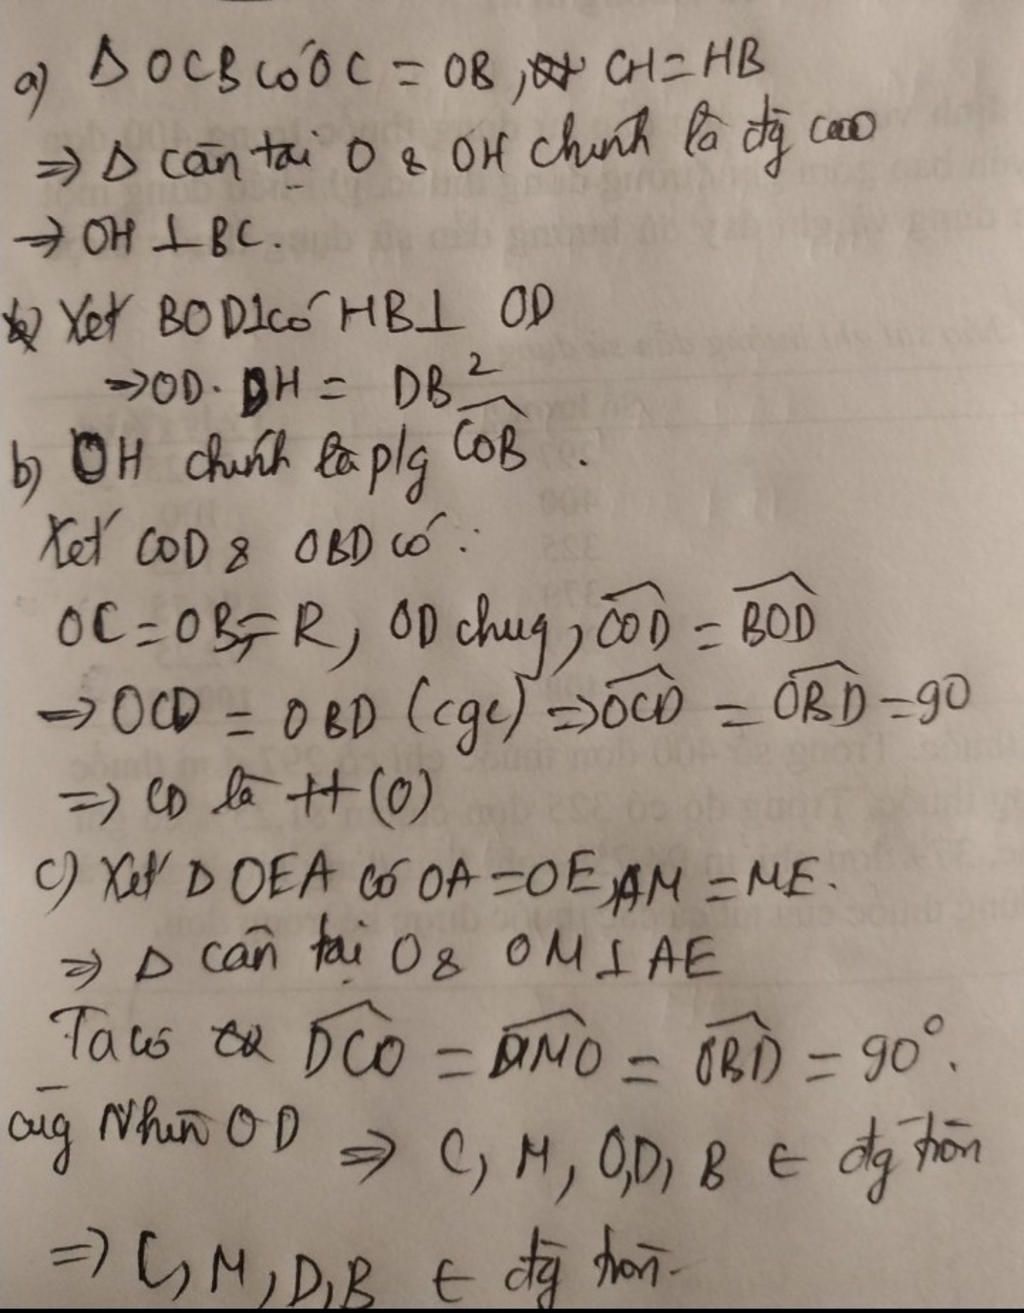 a) Δ OCB có OC = OB, CH = HB
⇒ Δ cân tại O & OH chính là đg cao
⇒ OH ⊥ BC.
Xét BOD⊥ có HB ⊥ OD
⇒ OD. DH = DB²
b) OH chính là p/g \widehat{COB}.
Xét COD & OBD có:
OC = OB = R, OD chug, \widehat{COD} = \widehat{BOD}
⇒ OCD = OBD (cgc) ⇒ \widehat{OCD} = \widehat{OBD} = 90
⇒ CD là tt (O)
c) Xét Δ OEA có OA = OE, AM = ME.
⇒ Δ cân tại O & OM ⊥ AE
Ta có \widehat{DCO} = \widehat{DMO} = \widehat{OBD} = 90°.
cùg Nhìn OD ⇒ C, M, O, D, B ∈ đg tròn
⇒ C, M, D, B ∈ đg tròn.